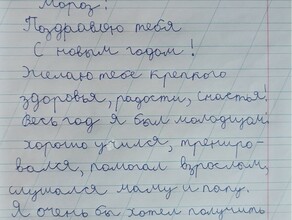 Мороз!
Поздравляю тебя
С новым годом!
Желаю тебе крепкого
здоровья, радости, счастья!
Весь год я был молодцом:
хорошо учился, трениро-
вался, помогал взрослым,
слушался маму и папу.
Я очень бы хотел получить